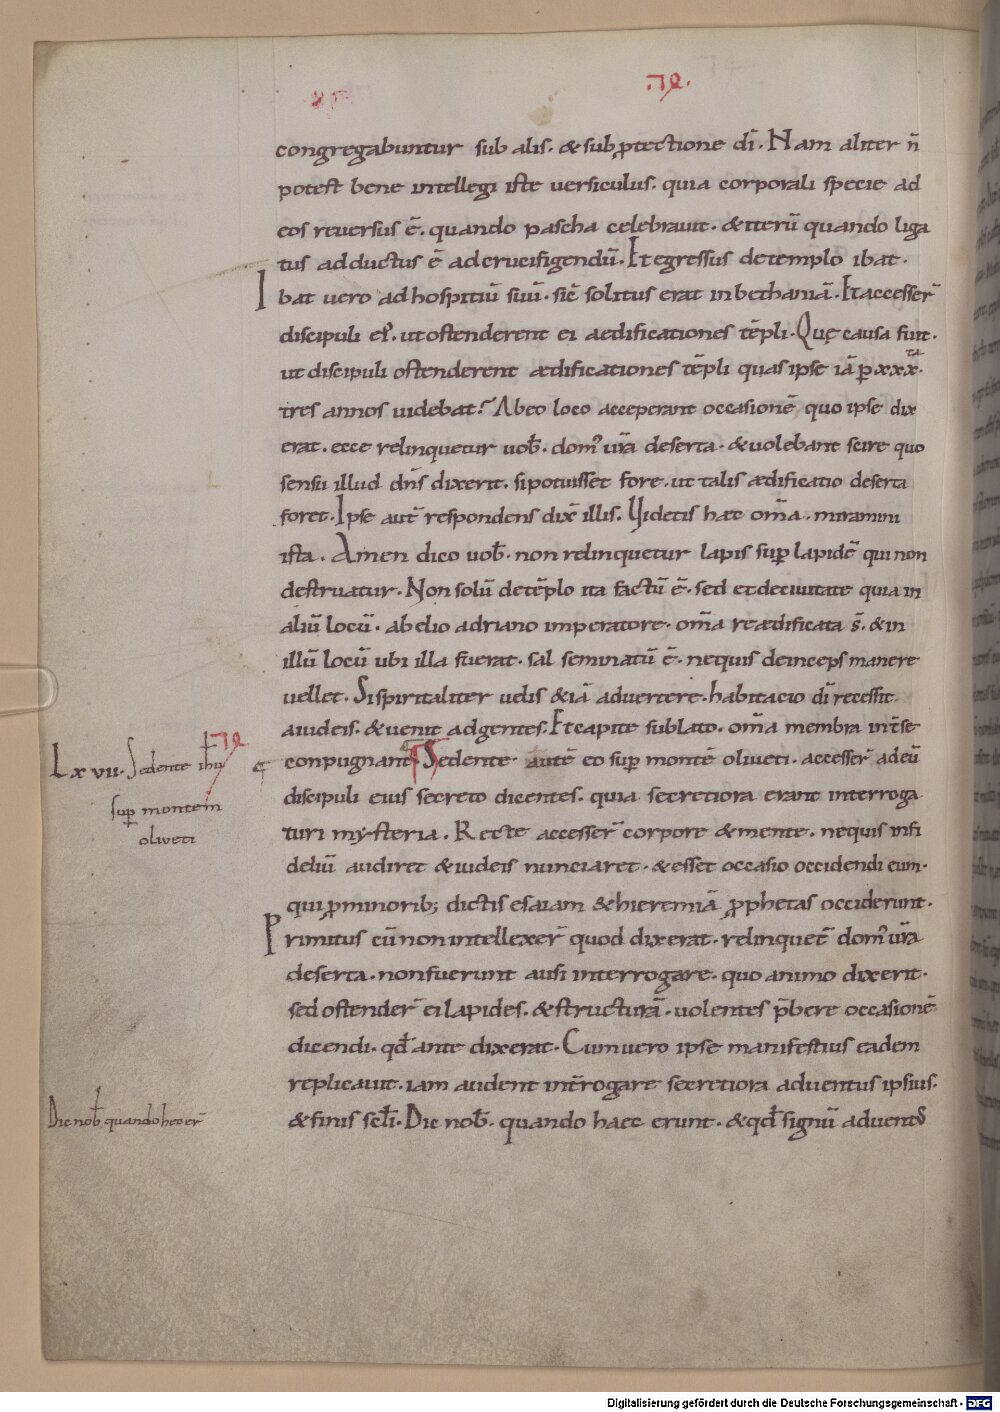 congregabuntur sub alis. & sub ꝓtectione dī. Nam aliter n̄
potest bene intellegi iste uersiculus. quia corporali specie ad
eos reuersus ē. quando pascha celebrauit. & iterū quando liga
tus adductus ē ad crucifigendū. Et egressus de templo ibat.
Ibat uero ad hospitiū suū. sic̄ solitus erat in bethaniā. Et accesser̄
discipuli ei'. ut ostenderent ei aedificationes tēpli. Quę causa fuit.
ut discipuli ostenderent ædificationes tēpli quas ipse iā ꝑ xxx.ta
tres annos uidebat? Ab eo loco acceperant occasionē quo ipse dix
erat. ecce relinquetur uob̄. dom' ur̄a deserta. & uolebant scire quo
sensu illud dn̄s dixerit. si potuisset fore. ut talis ædificatio deserta
foret. Ipse aut̄ respondens dix̄ illis. Uidetis haec om̄a. miramini
ista. Amen dico uob̄. non relinquetur lapis suꝑ lapidē qui non
destruatur. Non solū de tēplo ita factū ē. sed et de ciuitate quia in
aliū locū. ab elio adriano imperatore. om̄a reædificata s̄. & in
illū locū ubi illa fuerat. sal seminatū ē. nequis deinceps manere
uellet. Si spiritaliter uelis & iā aduertere. habitacio dī recessit
a iudeis. & uenit ad gentes. Et capite sublato. om̄a membra int̄ se
conpugnant. Sedente autē eo suꝑ montē oliueti. accesser̄ ad eū
discipuli eius secreto dicentes. quia secretiora erant interroga
turi mysteria. Recte accesser̄ corpore & mente. nequis infi
deliū audiret & iudeis nunciaret. & esset occasio occidendi eum.
qui ꝓ minorib; dictis esaiam & hieremiā ꝓphetas occiderunt.
Primitus cū non intellexer̄ quod dixerat. relinquet̄ dom' ur̄a
deserta. non fuerunt ausi interrogare. quo animo dixerit.
sed ostender̄ ei lapides. & structurā. uolentes p̄bere occasionē
dicendi. qd̄ ante dixerat. Cum uero ipse manifestius eadem
replicauit. iam audent int̄rogare secretiora aduentus ipsius.
& finis scl̄i. Dic nob̄. quando haec erunt. & qd̄ signū aduent'
Lxvii. Sedente ihu
suꝑ montem
oliueti
Dic nob̄ quando hec er̄